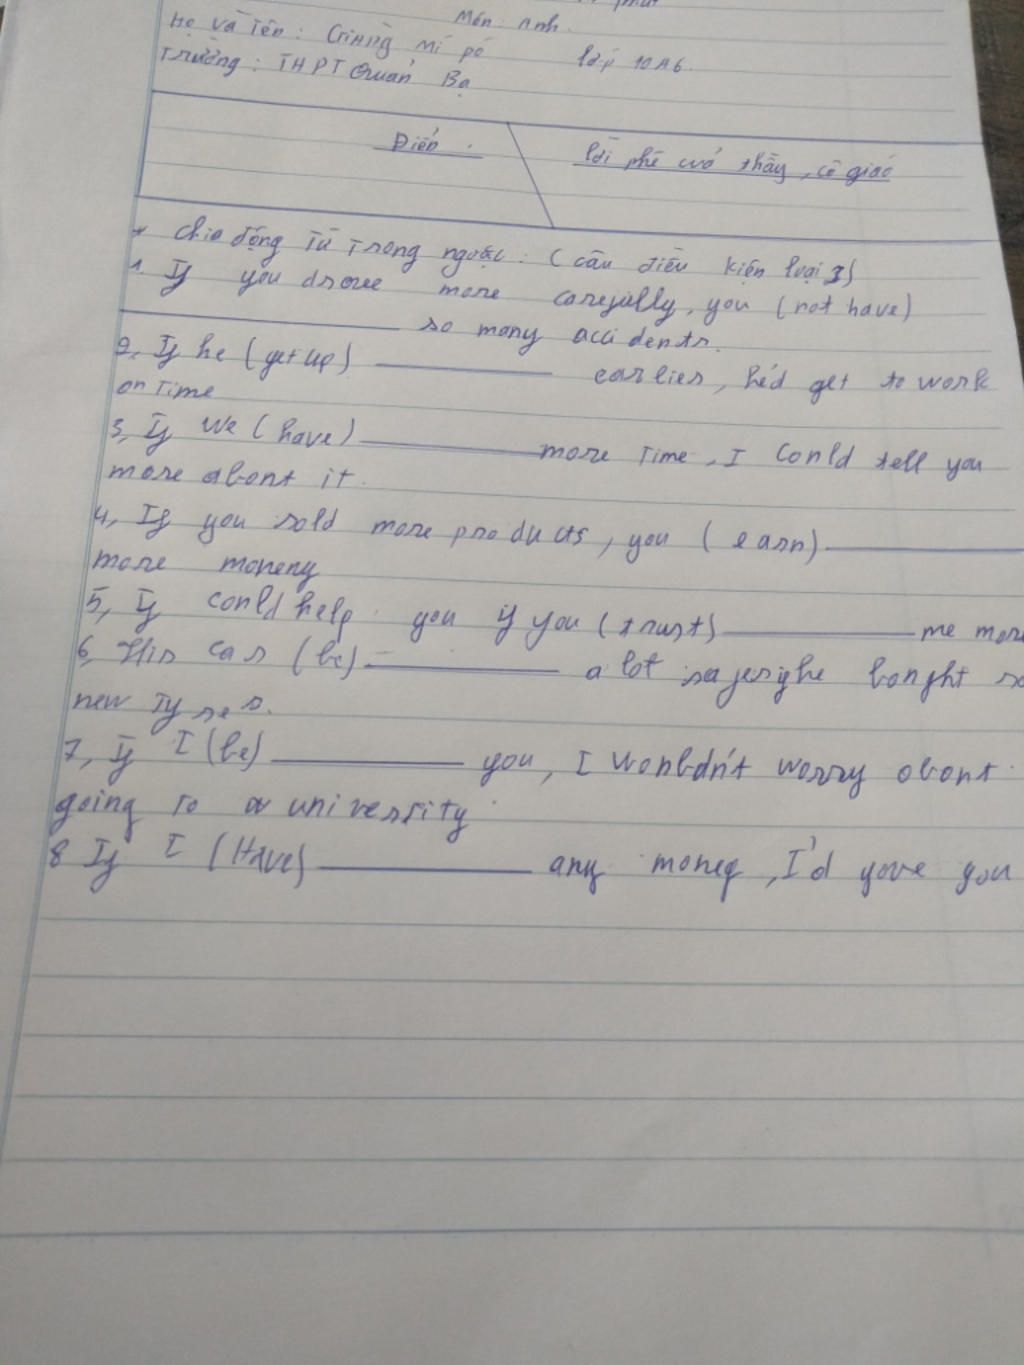 Môn: Anh.
Họ và Tên: Giàng Mí pó lớp 10A6.
Trường: THPT Quản Bạ
Điểm. lời phê cuả thầy, cô giáo
* Chia động Từ Trong ngoặc: (câu điều kiện loại 3)
1. If you drove more carefully, you (not have)
so many accidents.
2, If he (get up) earlier, he'd get to work
on Time
3, If We (have) more Time, I Could tell you
more about it.
4, If you sold more products, you (earn)
more moneny
5, If could help you if you (trust) me more
6, His car (be) a lot saferifhe bought so
new Tyres.
7, if I (be) you, I wouldn't worry about
going To a university
8 If I (Have) any money, I'd gove you